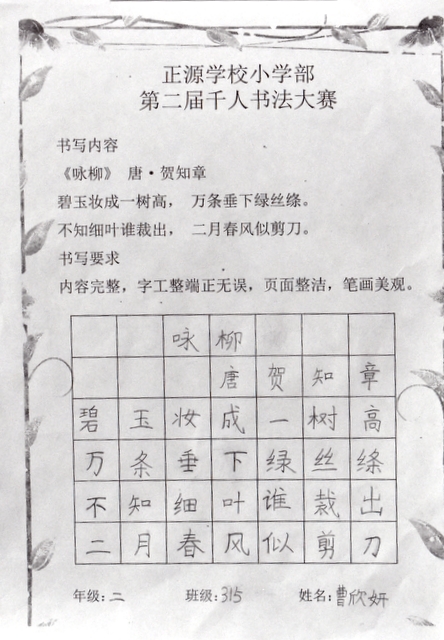 正源学校小学部
第二届千人书法大赛
书写内容
《咏柳》 唐·贺知章
碧玉妆成一树高， 万条垂下绿丝绦。
不知细叶谁裁出， 二月春风似剪刀。
书写要求
内容完整，字工整端正无误，页面整洁，笔画美观。
咏柳
唐贺知章
碧玉妆成一树高
万条垂下绿丝绦
不知细叶谁裁出
二月春风似剪刀
年级：二 班级：315 姓名：曹欣妍